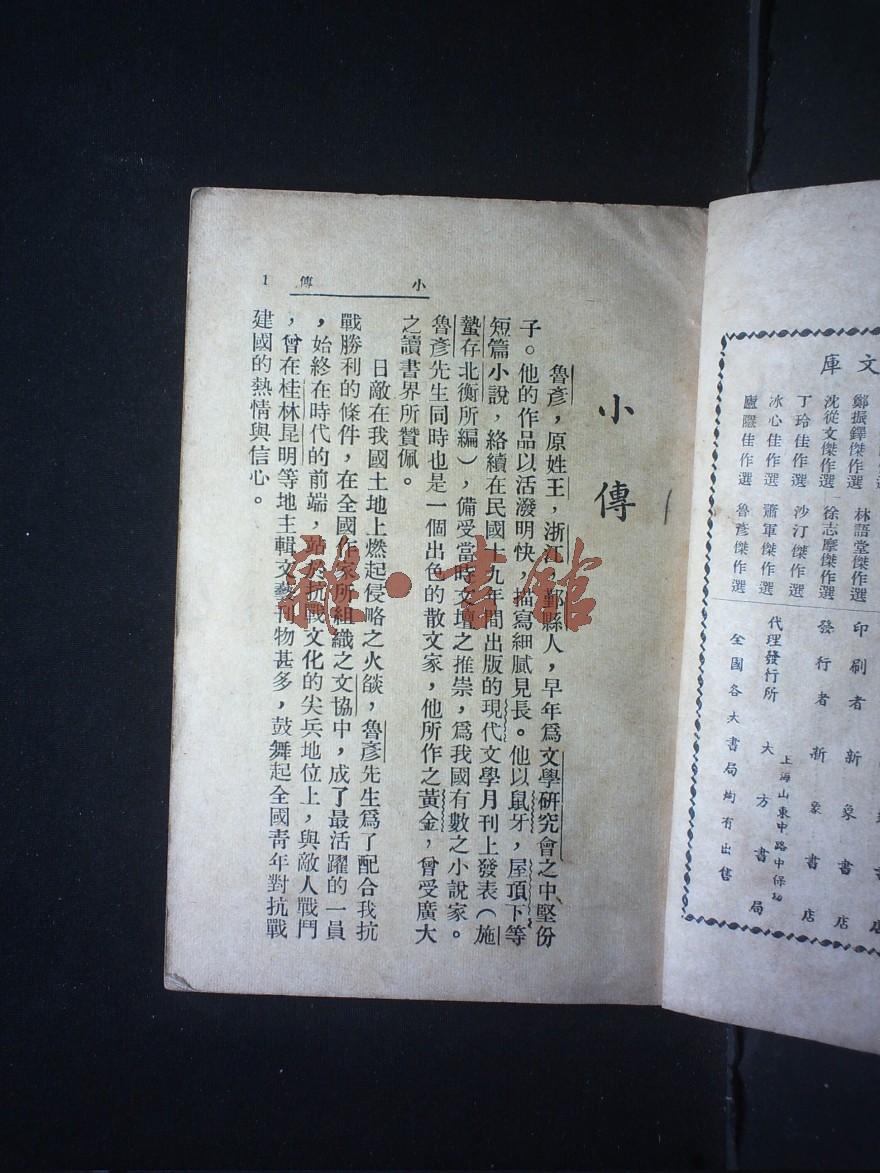 文庫
鄭振鐸傑作選 林語堂傑作選
沈從文傑作選 徐志摩傑作選
丁玲佳作選 沙汀傑作選
冰心佳作選 蕭軍傑作選
廬隱佳作選 魯彥傑作選
印刷者 新象書店
發行者 新象書店
代理發行所 大方書局
上海山東中路中保坊
全國各大書局均有出售
小傳
1
小傳
魯彥，原姓王，浙江 鄞縣人，早年爲文學研究會之中堅份
子。他的作品以活潑明快，描寫細膩見長。他以鼠牙，屋頂下等
短篇小說，絡續在民國十九年間出版的現代文學月刊上發表（施
蟄存北衡所編），備受當時文壇之推崇，爲我國有數之小說家。
魯彥先生同時也是一個出色的散文家，他所作之黃金，曾受廣大
之讀書界所贊佩。
日敵在我國土地上燃起侵略之火燄，魯彥先生爲了配合我抗
戰勝利的條件，在全國作家所組織之文協中，成了最活躍的一員
，始終在時代的前端，站於抗戰文化的尖兵地位上，與敵人戰鬥
，曾在桂林昆明等地主輯文藝刊物甚多，鼓舞起全國靑年對抗戰
建國的熱情與信心。
龍·書館